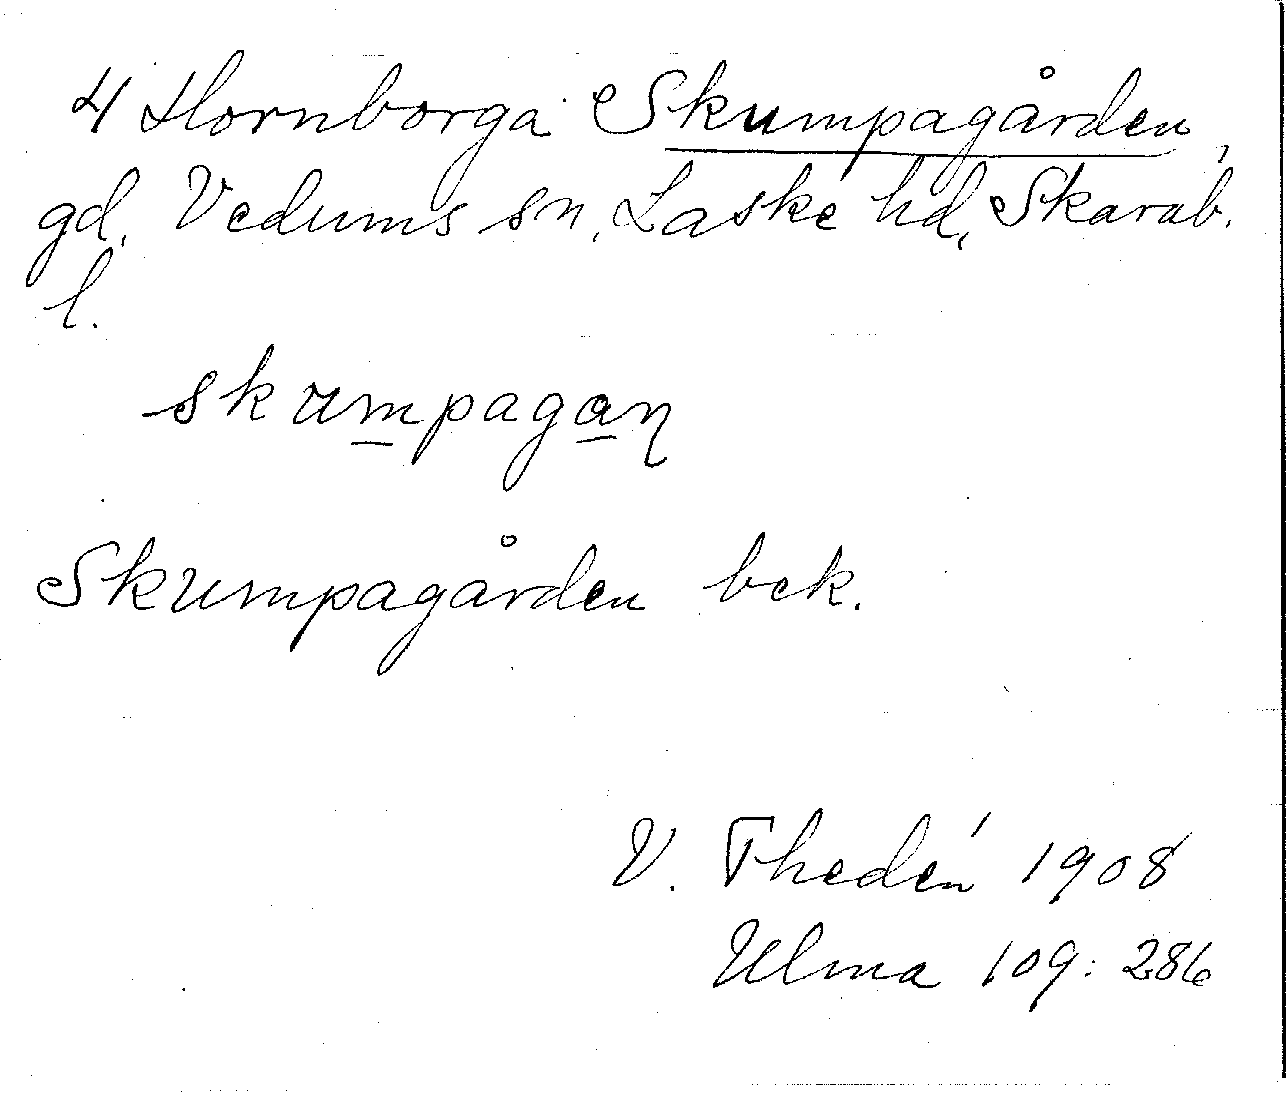 4 Hornborga Skumpagården,
gd, Vedums sn, Laske hd, Skarab.
l.
skumpagaɳ
Skumpagården bek.
V. Thedén 1908
Ulma 109: 286